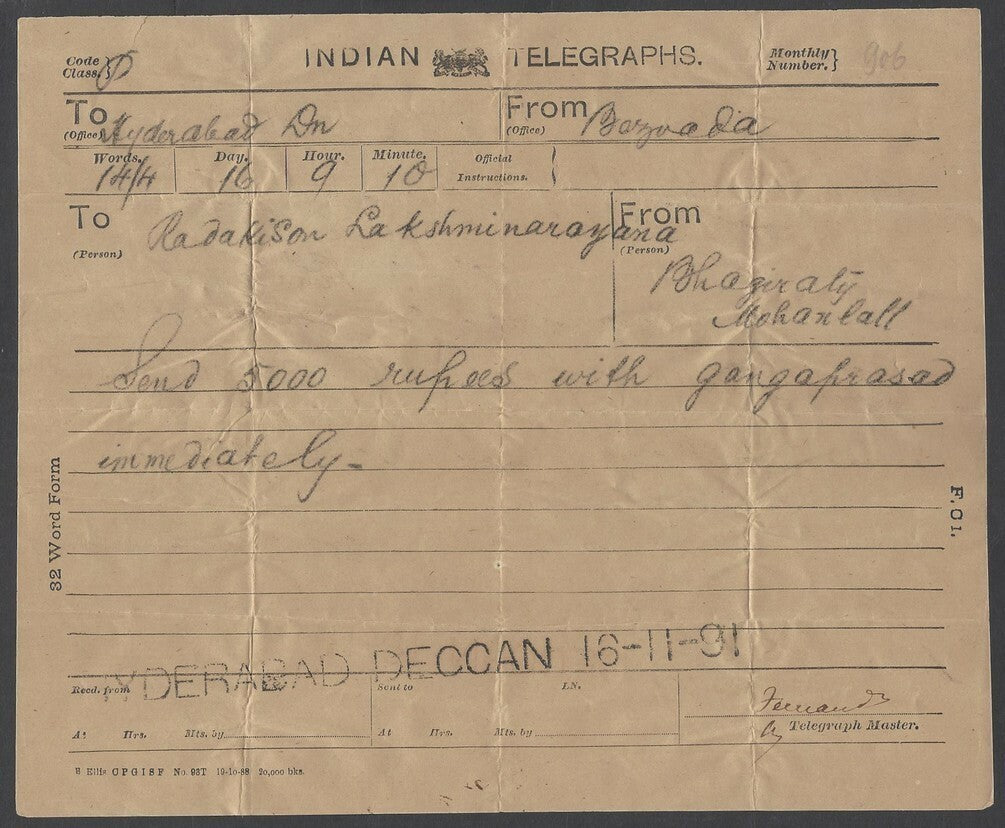 INDIAN TELEGRAPHS.
Code Class. P
Monthly Number. 906
To (Office) Hyderabad Dn
From (Office) Bezwada
Words. Day. Hour. Minute. Official Instructions.
14/4 16 9 10
To (Person) Radakison Lakshminarayana
From (Person) Bhagiraty
Mohanlall
Send 5000 rupees with gangaprasad
immediately -
32 Word Form
F. C1.
HYDERABAD DECCAN 16-11-91
Recd. from
Sent to
LN.
At Hrs. Mts. by
At Hrs. Mts. by
Telegraph Master.
E Ellis C P G I S F No. 93T 19-10-88 20,000 bks.